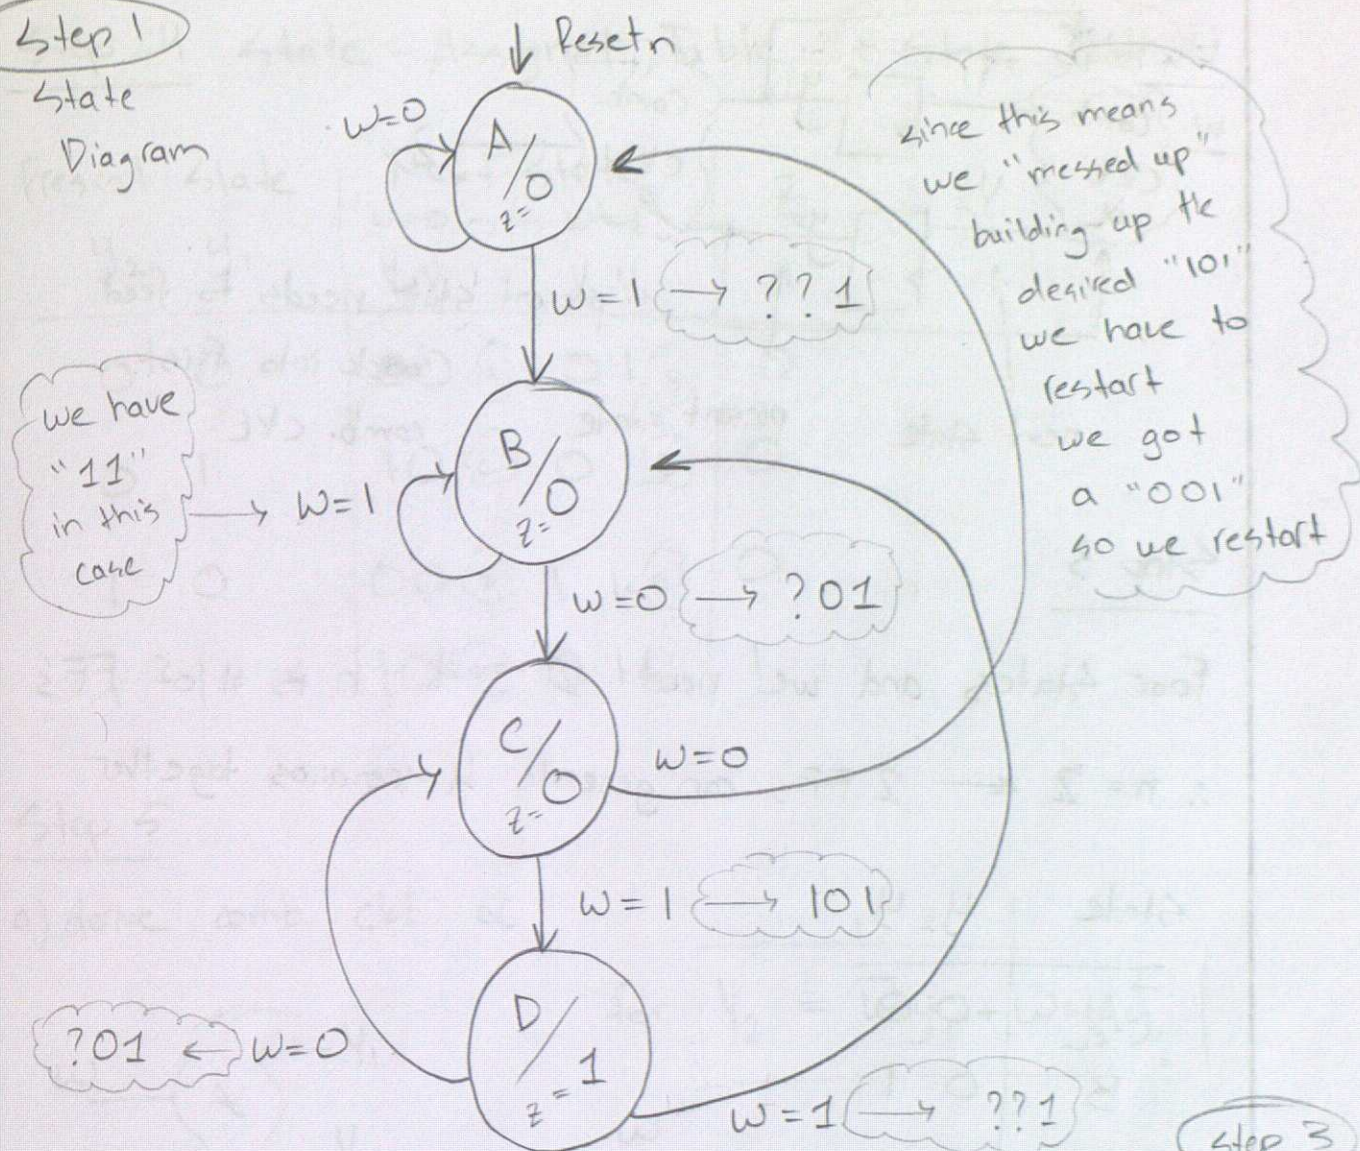 Step 1
State
Diagram
Resetn
w=0
A/0
z=
w=1 → ??1
since this means
we "messed up"
building up the
desired "101"
we have to
restart
we got
a "001"
so we restart
we have
"11"
in this
case
→ w=1
B/0
z=
w=0 → ?01
C/0
z=
w=0
w=1 → 101
D/1
z=
?01 ← w=0
w=1 → ??1
Step 3